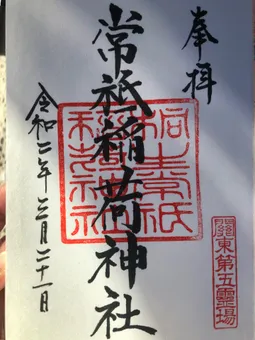 奉拝
常祇稲荷神社
令和二年三月二十一日
関東第五霊場